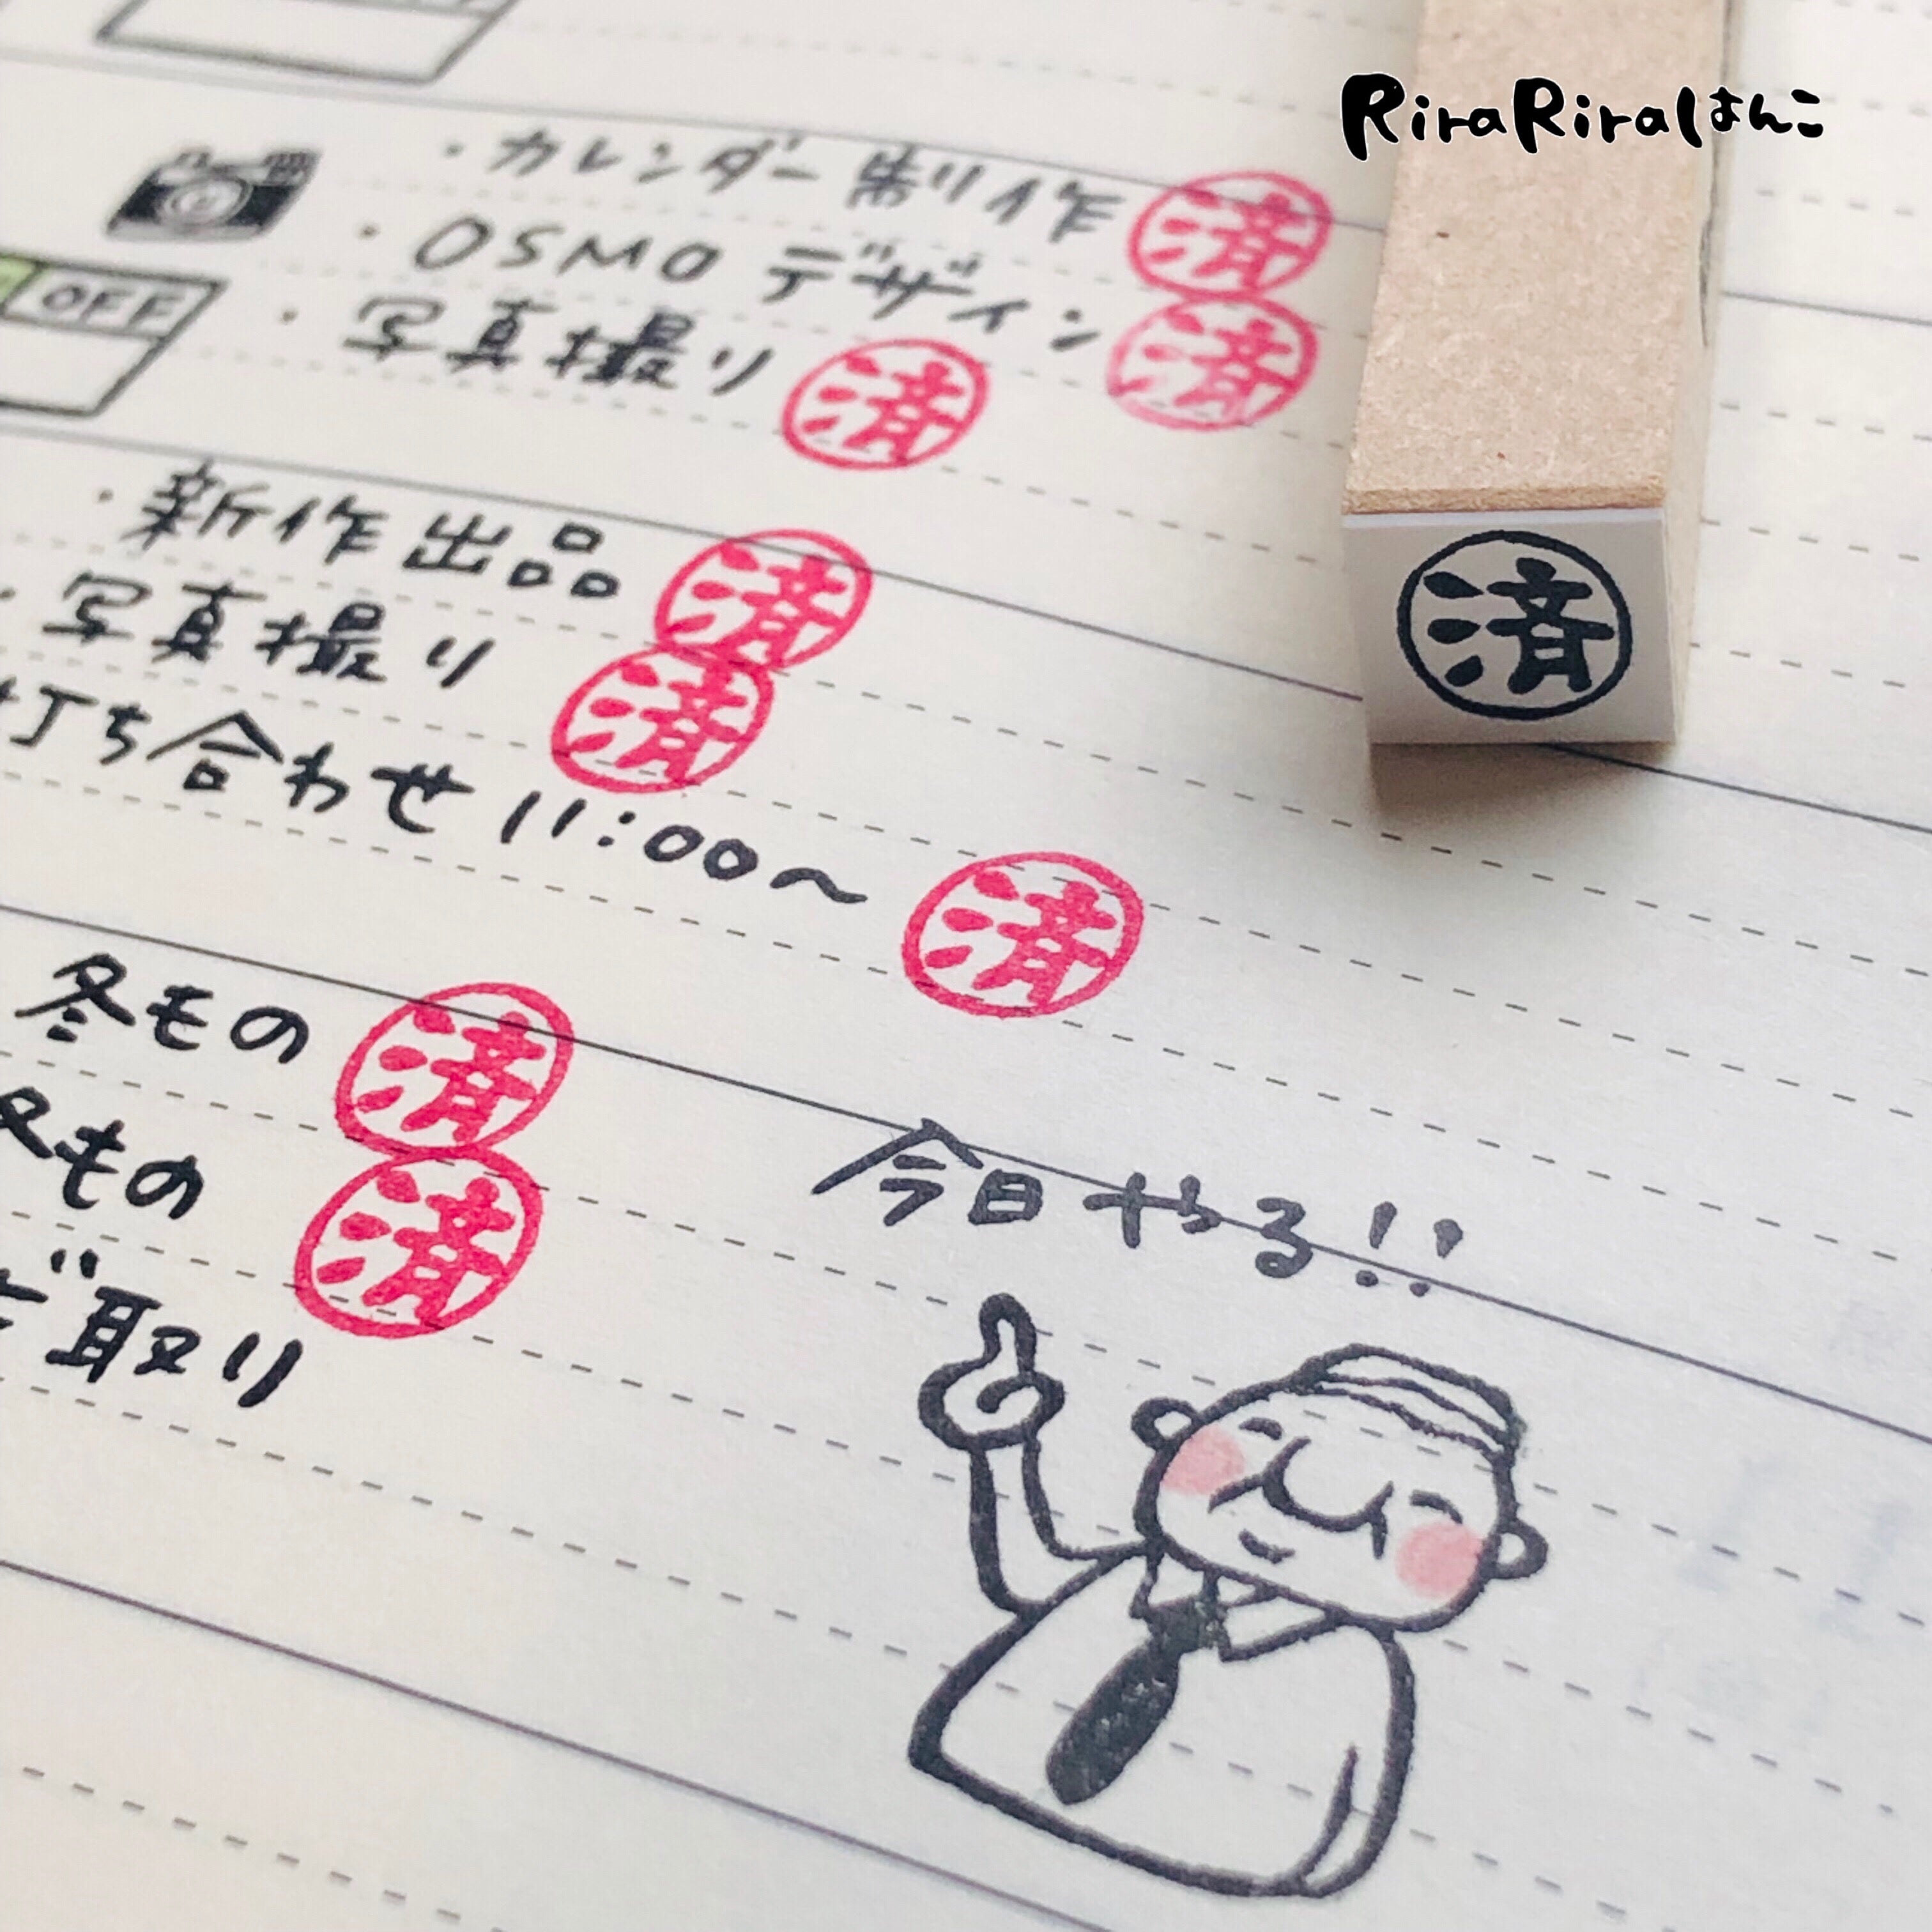 RiraRiraはんこ
・カレンダー制作 済
・OSMOデザイン 済
OFF
・写真撮り 済
・新作出品 済
・写真撮り 済
打ち合わせ 11:00〜 済
済
冬もの 済
冬もの 済
今日やる!!
取り